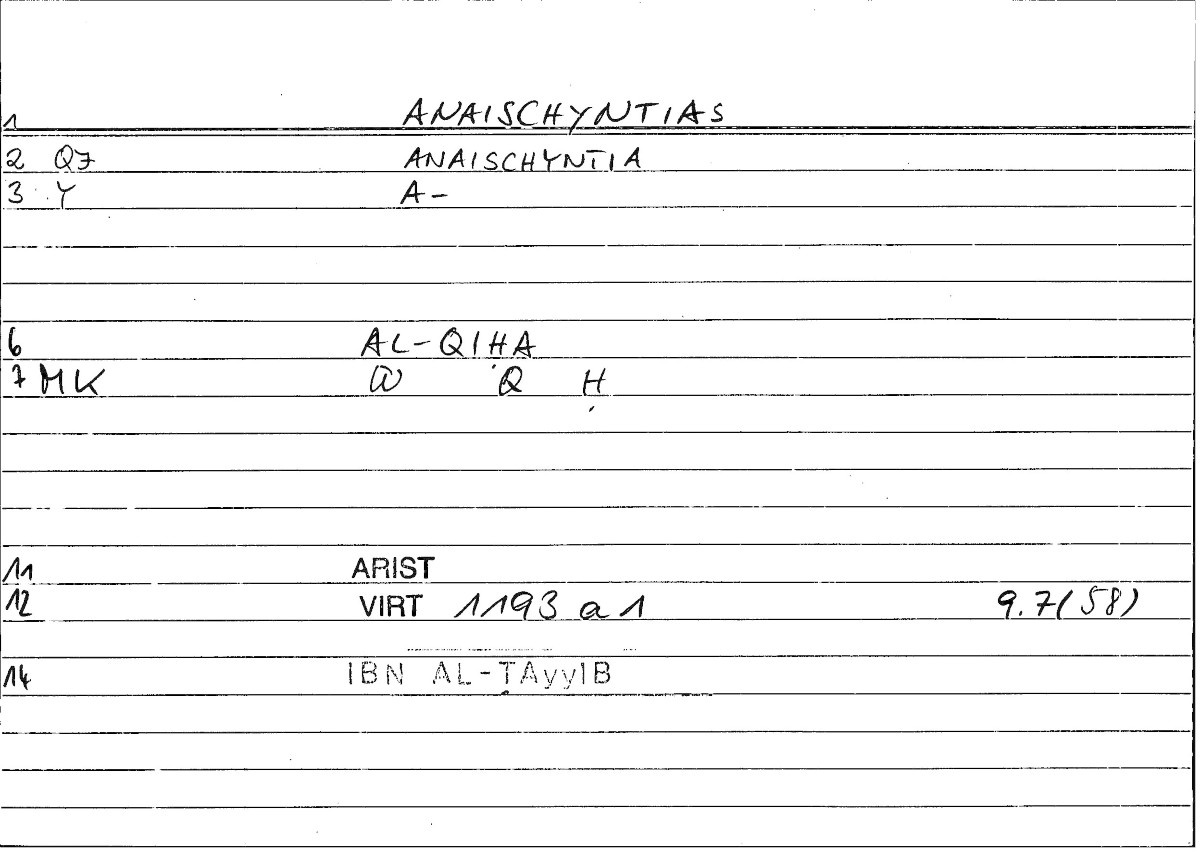 1 ANAISCHYNTIAS
2 Q7 ANAISCHYNTIA
3 Y A-
6 AL-QIḤA
7 MK W Q Ḥ
11 ARIST
12 VIRT 1193 a 1 9.7(58)
14 IBN AL-ṬAyyIB